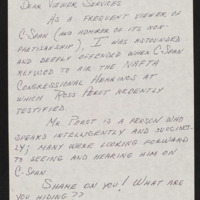 Dear Viewer Services
As a frequent viewer of
C-Span (and admirer of its non-
partisanship), I was astounded
and deeply offended when C-Span
refused to air the NAFTA
Congressional Hearings at
which Ross Perot recently
testified.
Mr. Perot is a person who
speaks intelligently and succinct-
ly; many were looking forward
to seeing and hearing him on
C-Span
Shame on you! What are
you hiding??